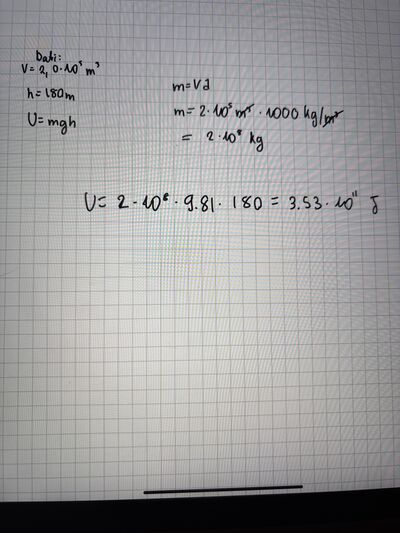 Dati:
V = 2,0·10⁵ m³
h = 180m
U = mgh
m = Vd
m = 2·10⁵ m³ · 1000 kg/m³
= 2·10⁸ kg
U = 2·10⁸ · 9.81 · 180 = 3.53·10¹¹ J